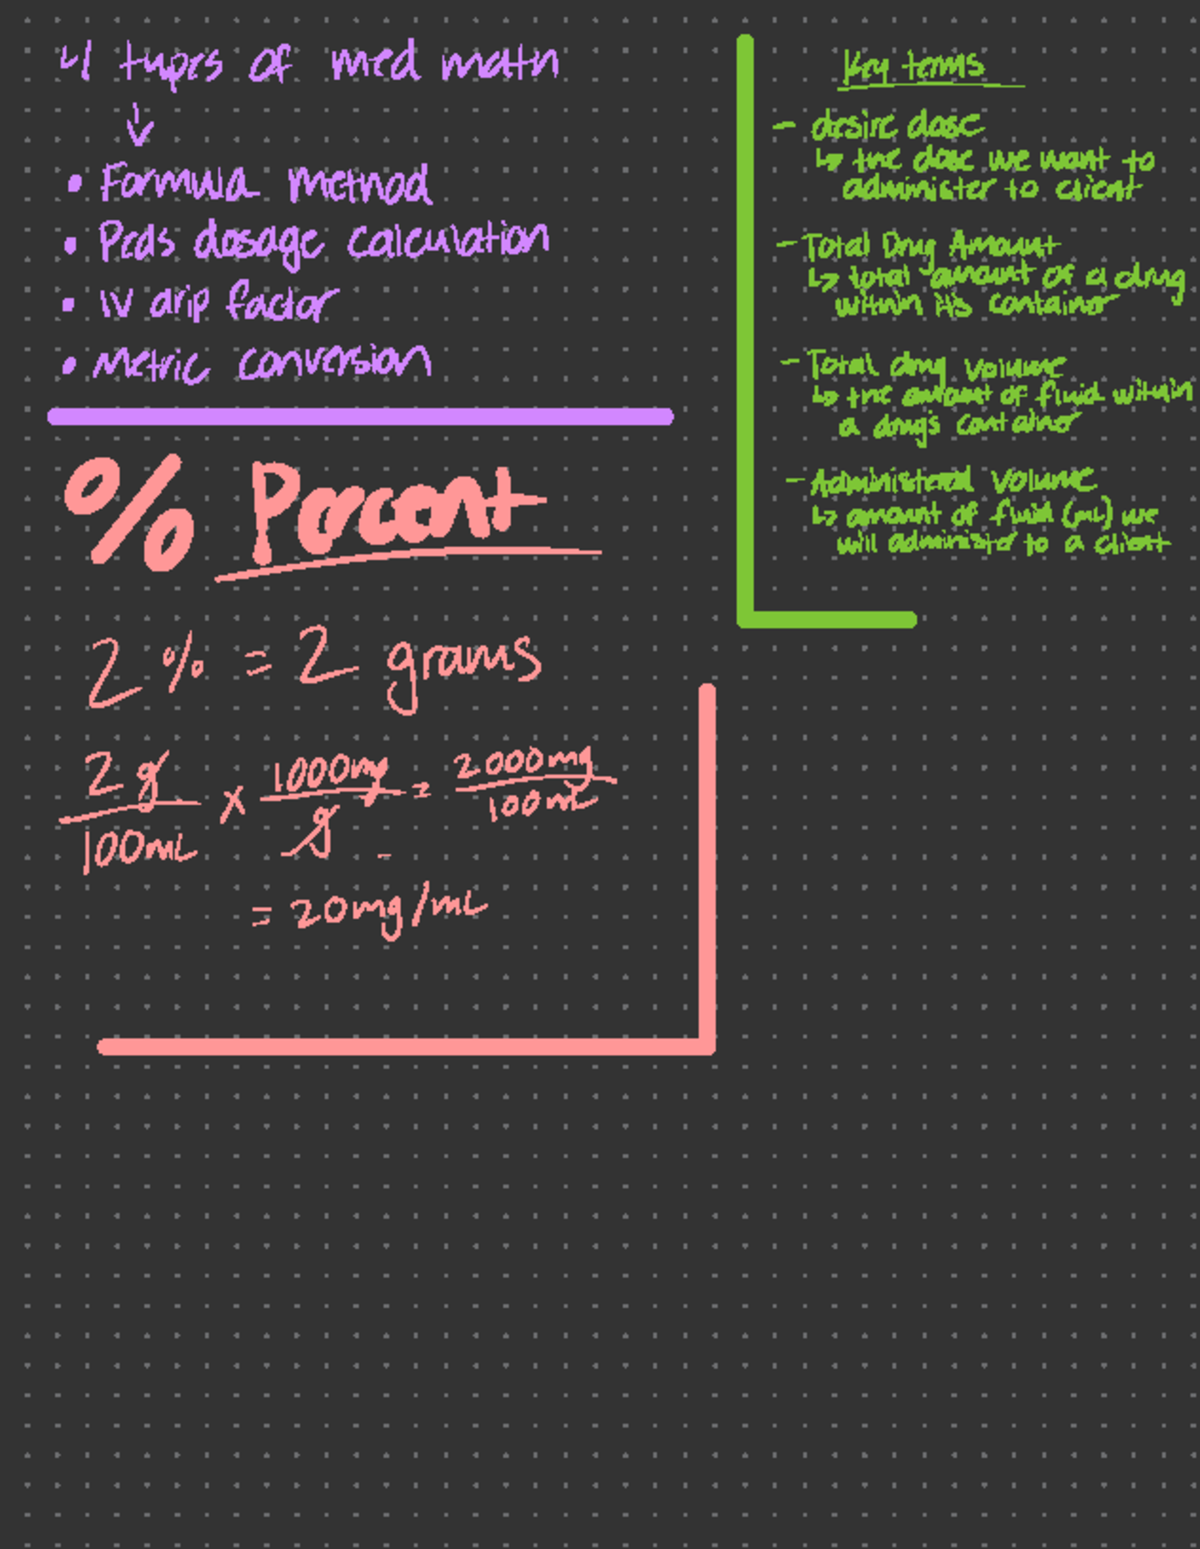 4 types of med math
↓
• Formula method
• Peds dosage calculation
• IV drip factor
• Metric conversion
% Percent
2 % = 2 grams
2 g / 100mL x 1000mg / g = 2000mg / 100mL
= 20mg/mL
Key terms
- desire dose
↳ the dose we want to
administer to client
- Total Drug Amount
↳ total amount of a drug
within it's container
- Total drug volume
↳ the amount of fluid within
a drug's container
- Administered volume
↳ amount of fluid (mL) we
will administer to a client